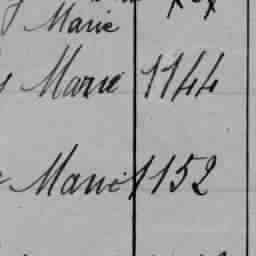 Marie
Marie 1144
Marie 1152